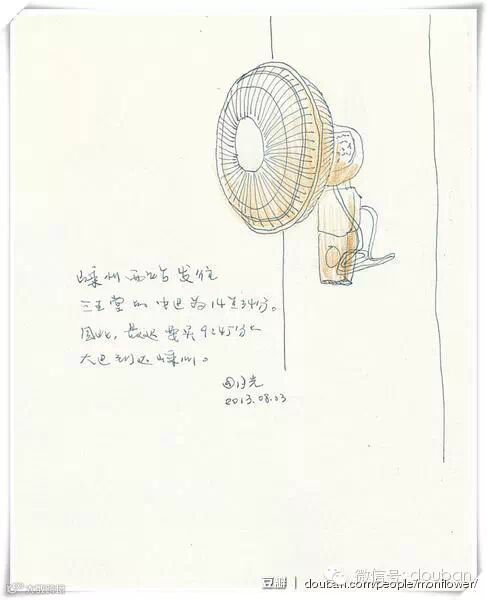 嵊州西站发往
三王堂的中巴为14点34分。
因此，最迟要买9:45分的
大巴到达嵊州。
田月光
2013.08.03
豆瓣 |
douban.com/people/monflower/
微信号: douban